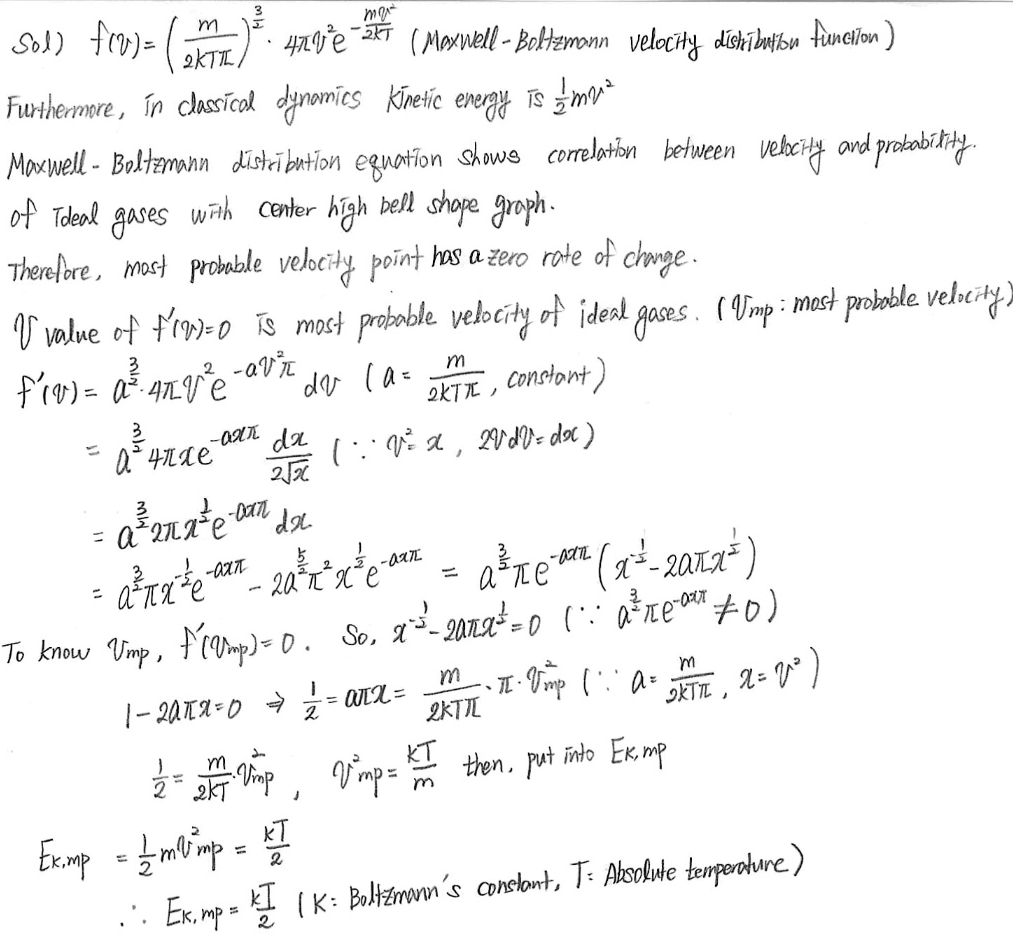 Sol) f(v) = (m/2kTπ)^(3/2) · 4πv²e^(-mv²/2kT) (Maxwell-Boltzmann velocity distribution function)
Furthermore, in classical dynamics kinetic energy is ½mv²
Maxwell-Boltzmann distribution equation shows correlation between velocity and probability.
of ideal gases with center high bell shape graph.
Therefore, most probable velocity point has a zero rate of change.
V value of f'(v)=0 is most probable velocity of ideal gases. (Vmp: most probable velocity)
f'(v) = a^(3/2)·4πv²e^(-av²π) dv (a = m/2kTπ, constant)
= a^(3/2) 4πxe^(-axπ) dx/2√x (∵ v² = x, 2vdv = dx)
= a^(3/2) 2πx^(1/2) e^(-axπ) dx
= a^(3/2) πx^(-1/2) e^(-axπ) - 2a^(5/2) π² x^(1/2) e^(-axπ) = a^(3/2) πe^(-axπ) (x^(-1/2) - 2aπx^(1/2))
To know Vmp, f'(Vmp)=0. So, x^(-1/2) - 2aπx^(1/2) = 0 (∵ a^(3/2) πe^(-axπ) ≠ 0)
1-2aπx=0 ⇒ 1/2 = aπx = m/2kTπ · π · V²mp (∵ a = m/2kTπ, x = v²)
1/2 = m/2kT · V²mp, V²mp = kT/m then, put into Ek,mp
Ek,mp = ½mV²mp = kT/2
∴ Ek,mp = kT/2 (K: Boltzmann's constant, T: Absolute temperature)